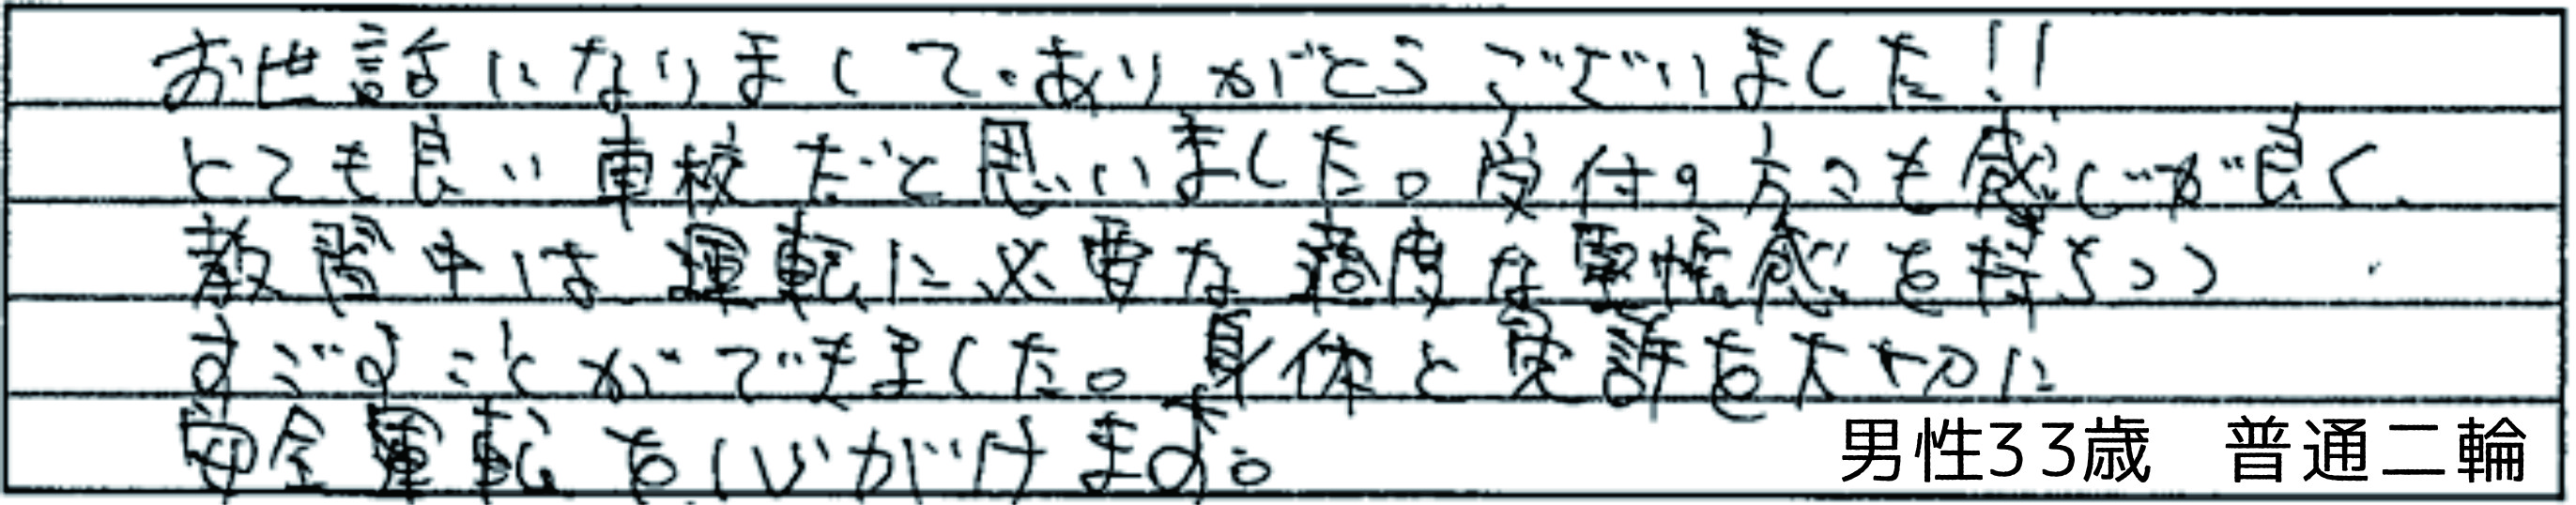 お世話になりまして、ありがとうございました!!
とても良い車校だと思いました。受付の方々も感じが良く、
教習中は運転に必要な適度な緊張感を持ちつつ
すごすことができました。身体と免許を大切に
安全運転を心がけます。
男性33歳 普通二輪